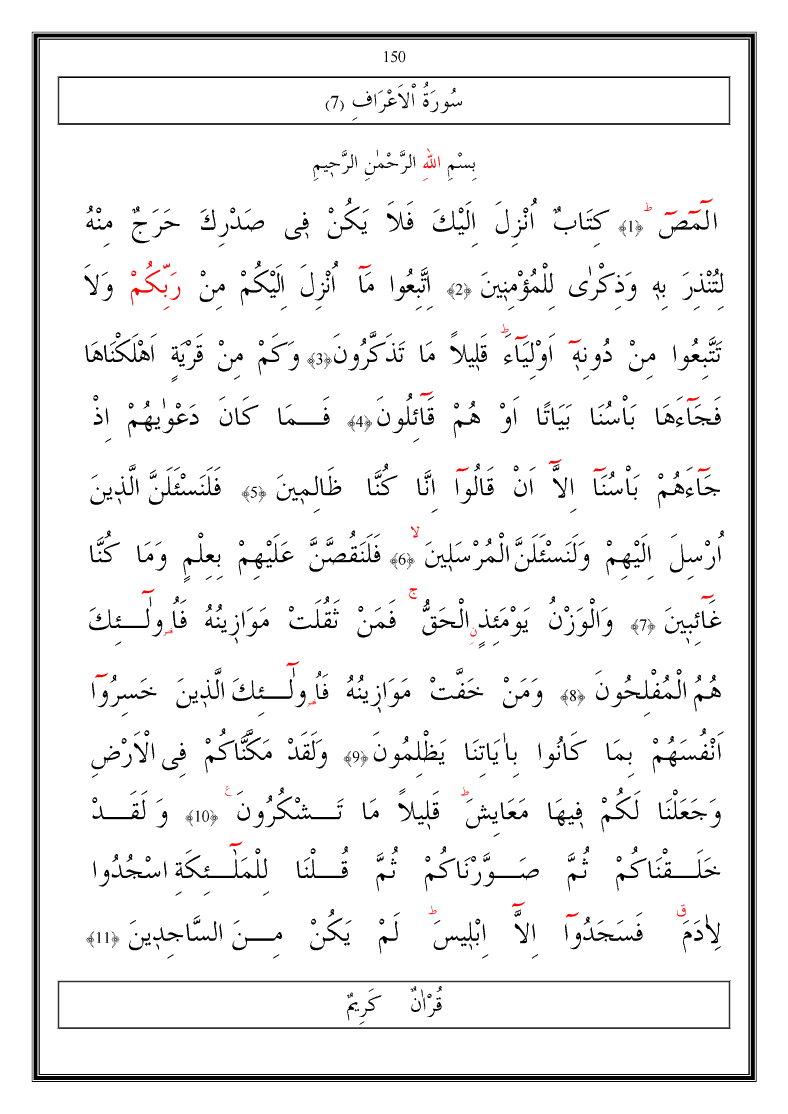 150
سُورَةُ اْلاَعْرَافِ (7)
بِسْمِ اللهِ الرَّحْمٰنِ الرَّحٖيمِ
الٓمٓصٓ ۜ ﴿1﴾ كِتَابٌ اُنْزِلَ اِلَيْكَ فَلاَ يَكُنْ فٖى صَدْرِكَ حَرَجٌ مِنْهُ
لِتُنْذِرَ بِهٖ وَذِكْرٰى لِلْمُؤْمِنٖينَ ﴿2﴾ اِتَّبِعُوا مَٓا اُنْزِلَ اِلَيْكُمْ مِنْ رَبِّكُمْ وَلاَ
تَتَّبِعُوا مِنْ دُونِهٖٓ اَوْلِيَٓاءَ ؕ قَلٖيلاً مَا تَذَكَّرُونَ ﴿3﴾ وَكَمْ مِنْ قَرْيَةٍ اَهْلَكْنَاهَا
فَجَٓاءَهَا بَاْسُنَا بَيَاتًا اَوْ هُمْ قَٓائِلُونَ ﴿4﴾ فَـــمَا كَانَ دَعْوٰيهُمْ اِذْ
جَٓاءَهُمْ بَاْسُنَٓا اِلآَّ اَنْ قَالُٓوا اِنَّا كُنَّا ظَالِمٖينَ ﴿5﴾ فَلَنَسْئَلَنَّ الَّذٖينَ
اُرْسِلَ اِلَيْهِمْ وَلَنَسْئَلَنَّ الْمُرْسَلٖينَ ۙ ﴿6﴾ فَلَنَقُصَّنَّ عَلَيْهِمْ بِعِلْمٍ وَمَا كُنَّا
غَٓائِبٖينَ ﴿7﴾ وَالْوَزْنُ يَوْمَئِذٍنِ الْحَقُّ ۚ فَمَنْ ثَقُلَتْ مَوَازٖينُهُ فَاُولٰٓـــئِكَ
هُمُ الْمُفْلِحُونَ ﴿8﴾ وَمَنْ خَفَّتْ مَوَازٖينُهُ فَاُولٰٓـــئِكَ الَّذٖينَ خَسِرُٓوا
اَنْفُسَهُمْ بِمَا كَانُوا بِاٰيَاتِنَا يَظْلِمُونَ ﴿9﴾ وَلَقَدْ مَكَّنَّاكُمْ فِى اْلاَرْضِ
وَجَعَلْنَا لَكُمْ فٖيهَا مَعَايِشَ ؕ قَلٖيلاً مَا تَـــشْكُرُونَ ﴿10﴾ وَ لَقَـــدْ
خَلَـــقْنَاكُمْ ثُمَّ صَـــوَّرْنَاكُمْ ثُمَّ قُـــلْنَا لِلْمَلٰٓـــئِكَةِ اسْجُدُوا
لِاٰدَمَ ۗ فَسَجَدُٓوا اِلآَّ اِبْلٖيسَ ؕ لَمْ يَكُنْ مِـــنَ السَّاجِدٖينَ ﴿11﴾
قُرْاٰنٌ كَرٖيمٌ